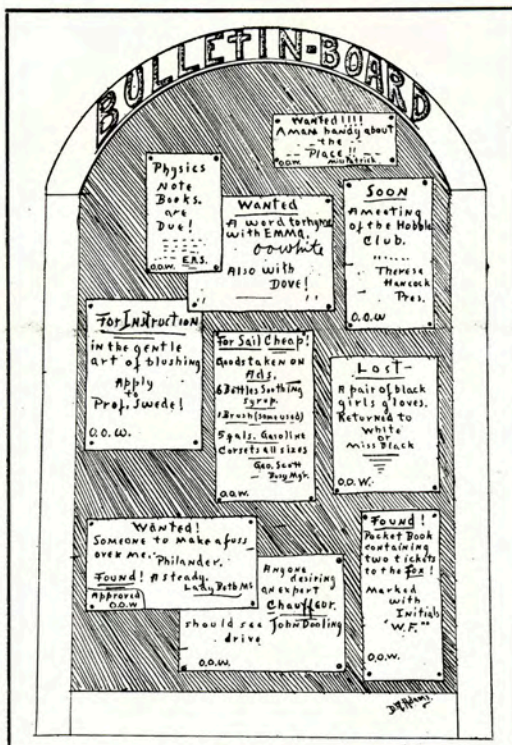 BULLETIN-BOARD
Wanted!!!!
A man handy about
the
Place!!
O.O.W. Miss Patrick.
Physics
Note
Books.
are
Due!
E.R.S.
O.O.W.
Wanted
A word to rhyme
with EMMA.
OO White
Also with
DOVE!
Soon
A meeting
of the Hobble
Club.
Therese
Hancock
Pres.
O.O.W
For Instruction
in the gentle
art of blushing
Apply
to
Prof. Swede!
O.O.W.
For Sail Cheap!
Goods taken on
Ads.
6 Bottles Soothing
Syrup.
1 Brush (some used)
5 gals. Gasoline
Corsets all sizes
Geo. Scott
Busy Mg'r.
O.O.W.
Lost-
A pair of black
girls gloves.
Returned to
White
or
Miss Black
O.O.W.
Wanted!
Someone to make a fuss
over me. Philander.
Found! A steady.
Lady Beth Mc
Approved
O.O.W
Anyone
desiring
an expert
Chauffeur.
should see John Dooling
drive
O.O.W.
Found!
Pocket Book
containing
two tickets
to the Fox!
Marked
with
Initials
"W.F."
O.O.W.
Adams.